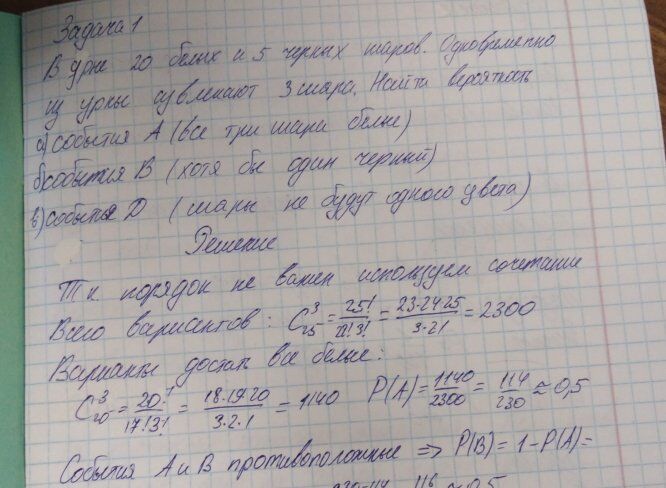 Задача 1
В урне 20 белых и 5 черных шаров. Одновременно
из урны извлекают 3 шара. Найти вероятность
а) события A (все три шара белые)
б) события B (хотя бы один черный)
в) события D (шары не будут одного цвета)
Решение
Т.к. порядок не важен используем сочетание
Всего вариантов: C₂₅³ = 25!/22!3! = 23·24·25/3·2·1 = 2300
Варианты достать все белые:
C₂₀³ = 20!/17!3! = 18·19·20/3·2·1 = 1140 P(A) = 1140/2300 = 114/230 ≈ 0,5
События A и B противоположные ⇒ P(B) = 1 - P(A) =
116 ≈ 0,5